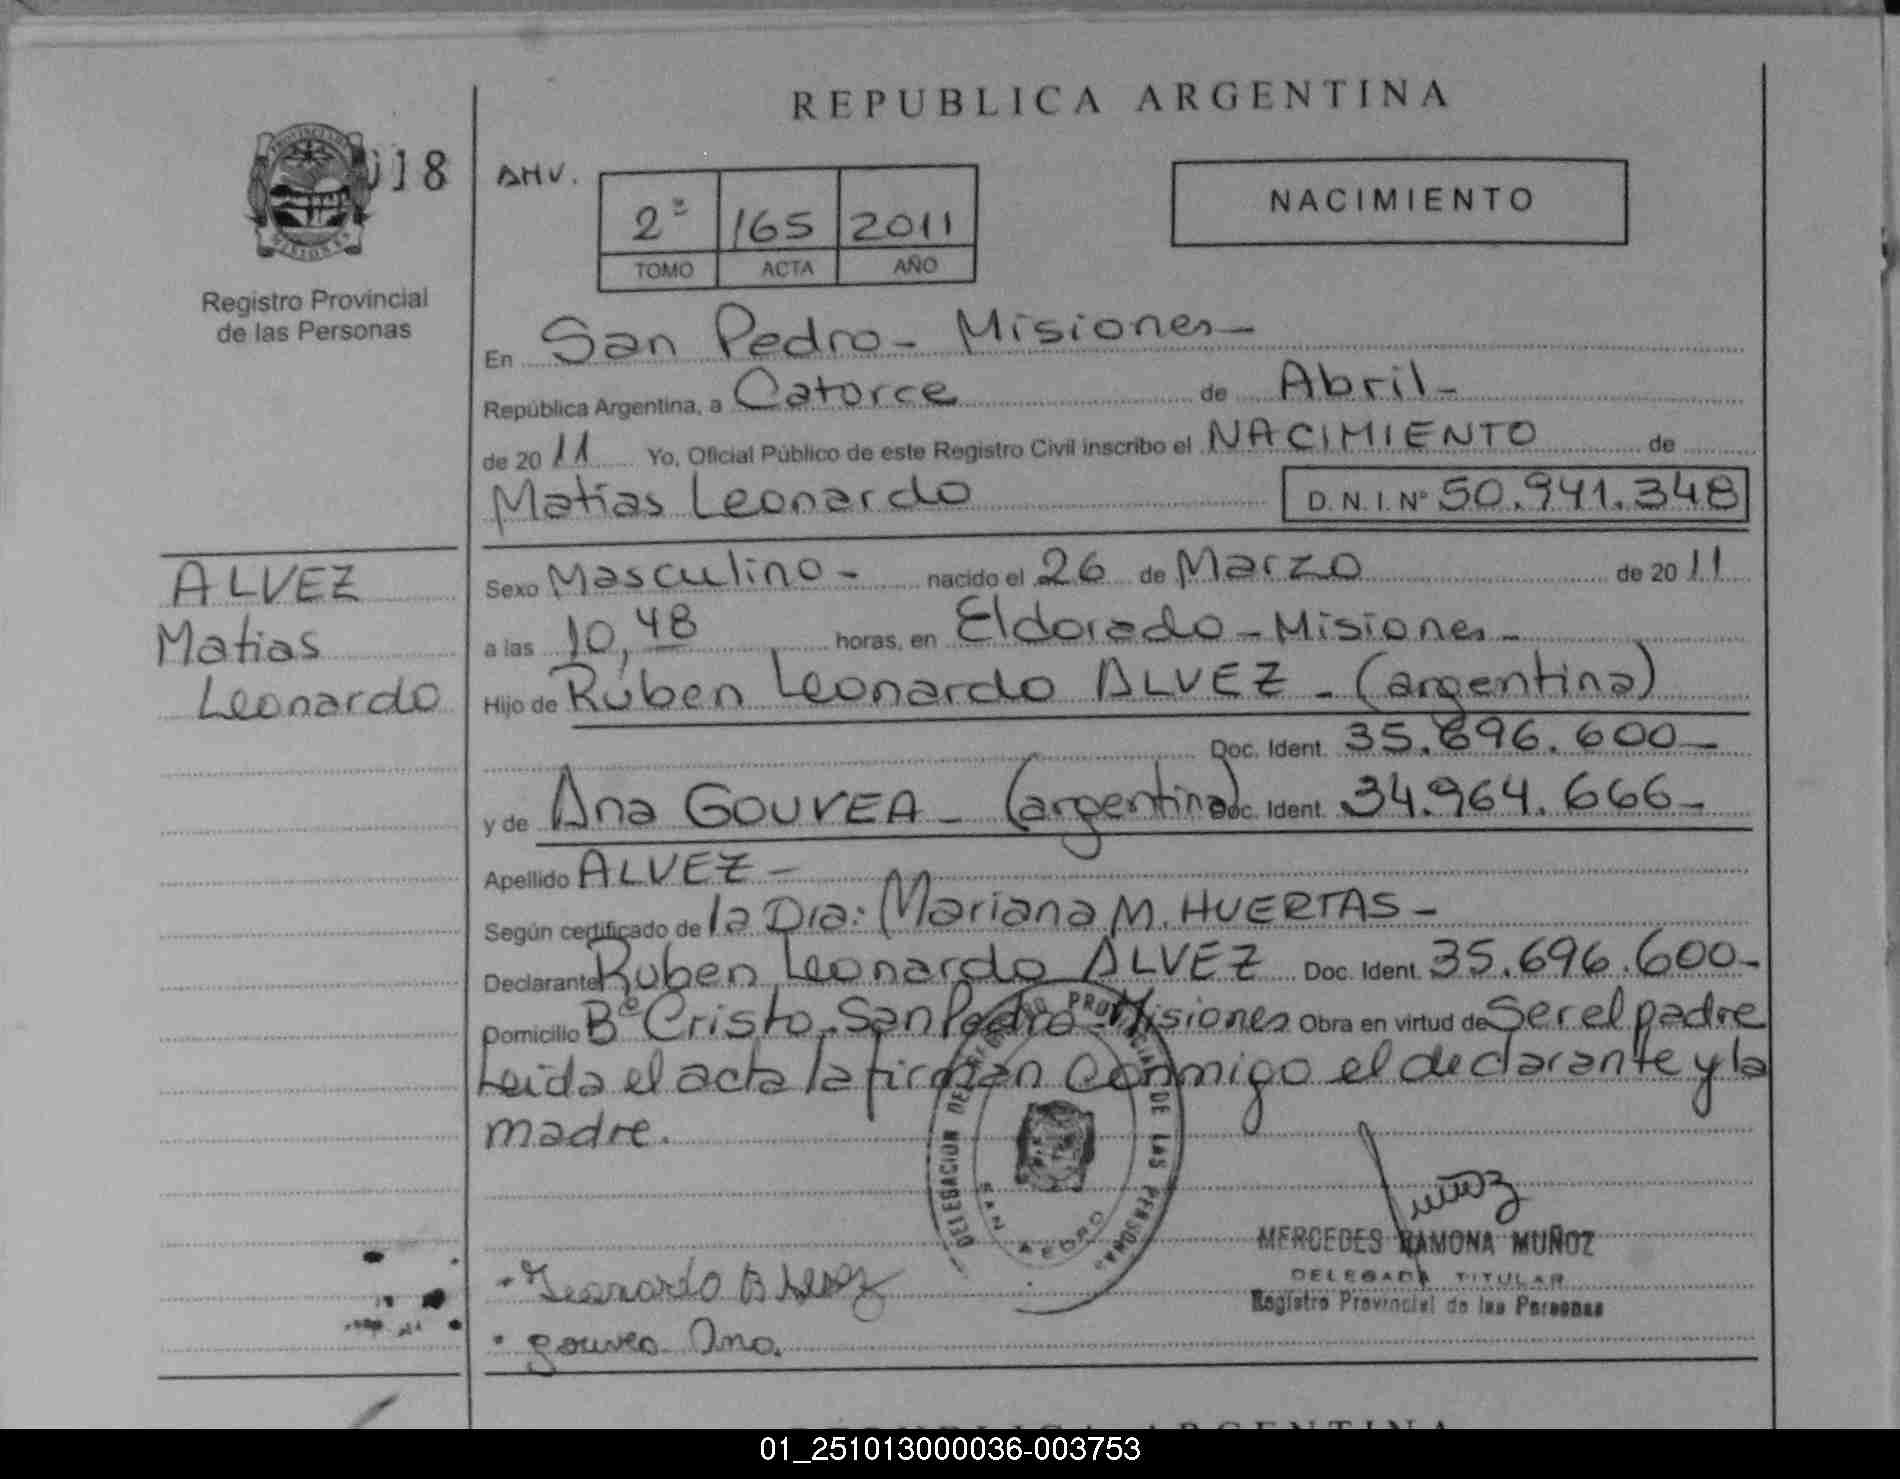 REPUBLICA ARGENTINA
PROVINCIA DE MISIONES
118
AHV.
2ª 165 2011
TOMO ACTA AÑO
NACIMIENTO
Registro Provincial
de las Personas
En San Pedro - Misiones -
República Argentina, a Catorce de Abril -
de 2011 Yo, Oficial Público de este Registro Civil inscribo el NACIMIENTO de
Matias Leonardo D.N.I. Nº 50.941.348
ALVEZ
Matias
Leonardo
Sexo Masculino - nacido el 26 de Marzo de 2011
a las 10,48 horas, en Eldorado - Misiones -
Hijo de Rúben Leonardo ALVEZ - (argentina)
Doc. Ident. 35.696.600 -
y de Ana GOUVEA - (argentina) Doc. Ident. 34.964.666 -
Apellido ALVEZ -
Según certificado de la Dra: Mariana M. HUERTAS -
Declarante Ruben Leonardo ALVEZ Doc. Ident. 35.696.600 -
Domicilio Bº Cristo - San Pedro - Misiones Obra en virtud de Ser el padre
Leida el acta la firman conmigo el declarante y la
madre.
DELEGACION DEL REGISTRO PROVINCIAL DE LAS PERSONAS
SAN PEDRO
MERCEDES RAMONA MUÑOZ
DELEGADA TITULAR
Registro Provincial de las Personas
Muñoz
Leonardo
Gouvea Ana.
REPUBLICA ARGENTINA
01_251013000036-003753